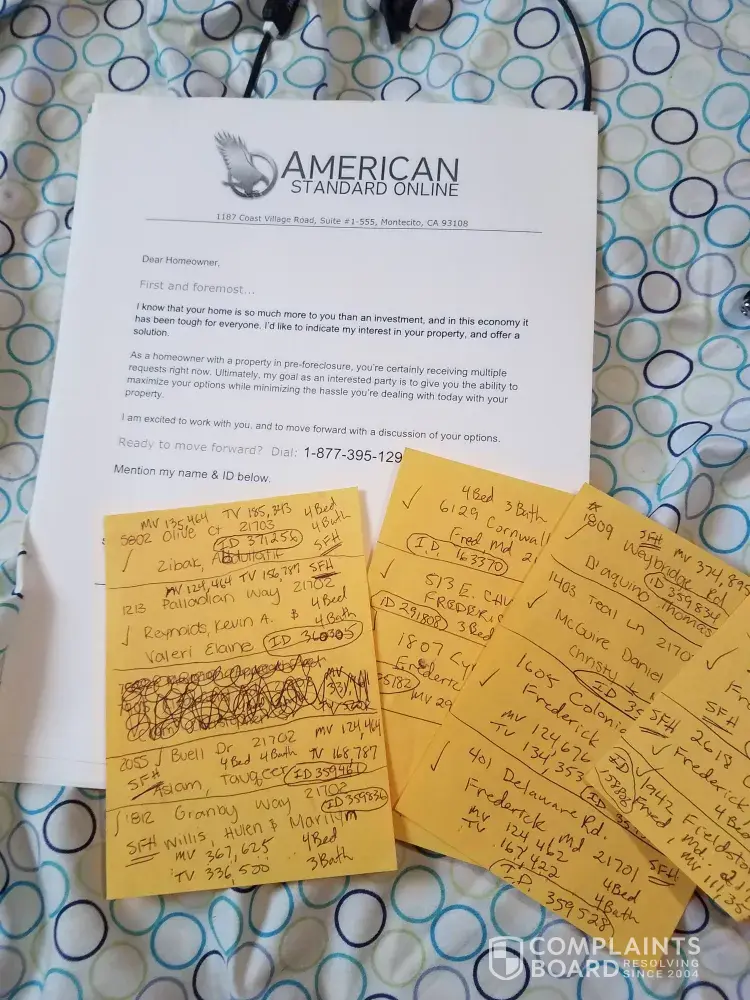 AMERICAN
STANDARD ONLINE
1187 Coast Village Road, Suite #1-555, Montecito, CA 93108
Dear Homeowner,
First and foremost...
I know that your home is so much more to you than an investment, and in this economy it
has been tough for everyone. I'd like to indicate my interest in your property, and offer a
solution.
As a homeowner with a property in pre-foreclosure, you're certainly receiving multiple
requests right now. Ultimately, my goal as an interested party is to give you the ability to
maximize your options while minimizing the hassle you're dealing with today with your
property.
I am excited to work with you, and to move forward with a discussion of your options.
Ready to move forward? Dial: 1-877-395-129
Mention my name & ID below.
MV 135,464 TV 185,343 4Bed
5802 Olive Ct 21703 4Bath
ID 371256 SFH
Zibak, Abdullatif
MV 124,464 TV 156,787 SFH
1213 Palladian Way 21702
Reynolds, Kevin A. & 4Bed
Valeri Elaine ID 360305 4Bath
MV
TV
MV 124,464
2055 Buell Dr 21702 TV 168,787
SFH 4Bed 4Bath
Aslam, Tauqeer ID 35946
1812 Granby Way 21702
ID 359836
SFH Willis, Hulen & Marilyn
MV 367,625 4Bed
TV 336,500 3Bath
4Bed 3Bath
6129 Cornwall
Fred, Md 2
I.D. 163370
513 E. CHU
FREDERI
ID 291808 3Bed
1807 Ly
Frederic
35782 MV 29
SFH MV 374,895
1809 Weybridge Rd
ID 359834
D'aquino Thomas
1403 Teal Ln 2170
McGuire Daniel
Christy &
ID 35
1605 Colonia
Frederick
MV 124,676
TV 134,353
ID 35
401 Delaware Rd.
Frederick Md 21701 SFH
MV 124,462 4Bed
TV 167,422 4Bath
I.D 359528
Fr
SFH
SFH 2618
Frederick
4Bed
ID
1942 Fieldsto
Fred, Md. 21
MV 111,35
COMPLAINTS
BOARD RESOLVING
SINCE 2004